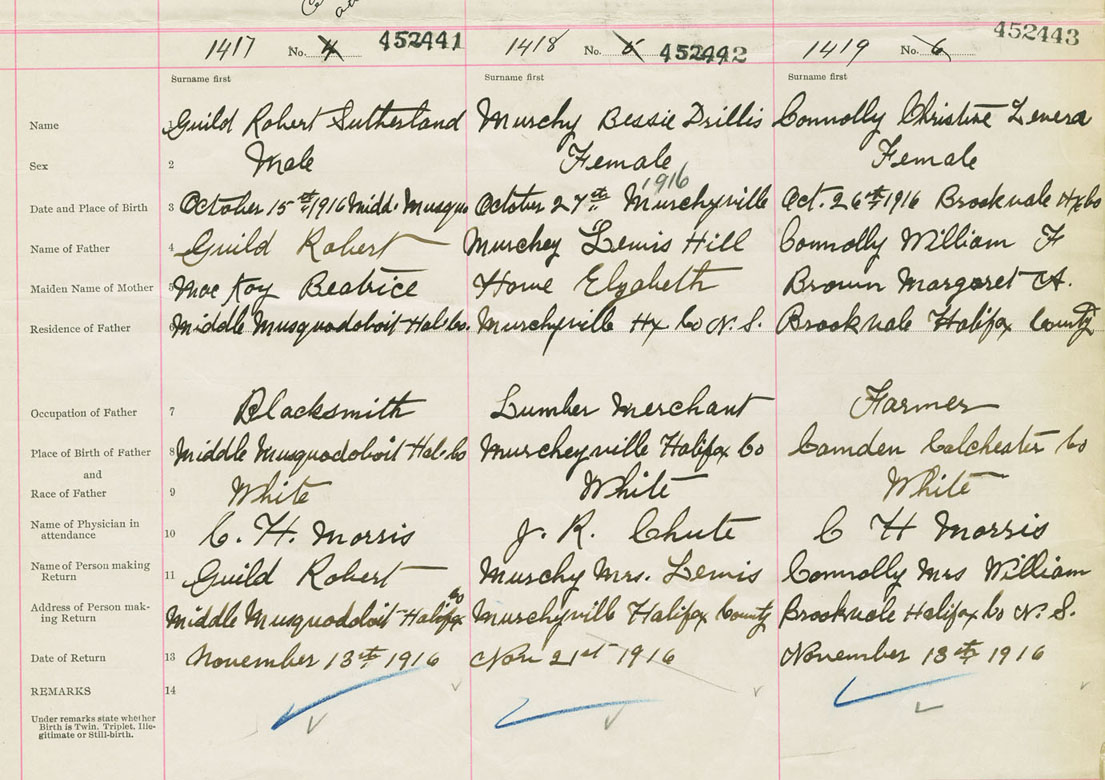 1417 No. 4 452441 1418 No. 5 452442 1419 No. 6 452443
Surname first Surname first Surname first
Name 1 Guild Robert Sutherland Murchy Bessie Drillis Connolly Christine Levera
Sex 2 Male Female Female
1916
Date and Place of Birth 3 October 15th 1916 Midd. Musquo October 27st Murchyville Oct. 26th 1916 Brookvale Hx Co
Name of Father 4 Guild Robert Murchey Lewis Hill Connolly William F
Maiden Name of Mother 5 MacKay Beatrice Howe Elizabeth Brown Margaret A.
Residence of Father 6 Middle Musquodoboit Hal. Co. Murchyville Hx Co N. S. Brookvale Halifax County
Occupation of Father 7 Blacksmith Lumber Merchant Farmer
Place of Birth of Father 8 Middle Musquodoboit Hal. Co Murcheyville Halifax Co Camden Colchester Co
and
Race of Father 9 White White White
Name of Physician in
attendance 10 C. H. Morris J. R. Chute C H Morris
Name of Person making
Return 11 Guild Robert Murchy Mrs. Lewis Connolly Mrs William
Co
Address of Person mak-
ing Return Middle Musquodoboit Halifax Murchyville Halifax County Brookvale Halifax Co N. S.
Date of Return 13 November 13th 1916 Nov 21st 1916 November 13th 1916
REMARKS 14
Under remarks state whether
Birth is Twin, Triplet, Ille-
gitimate or Still-birth.